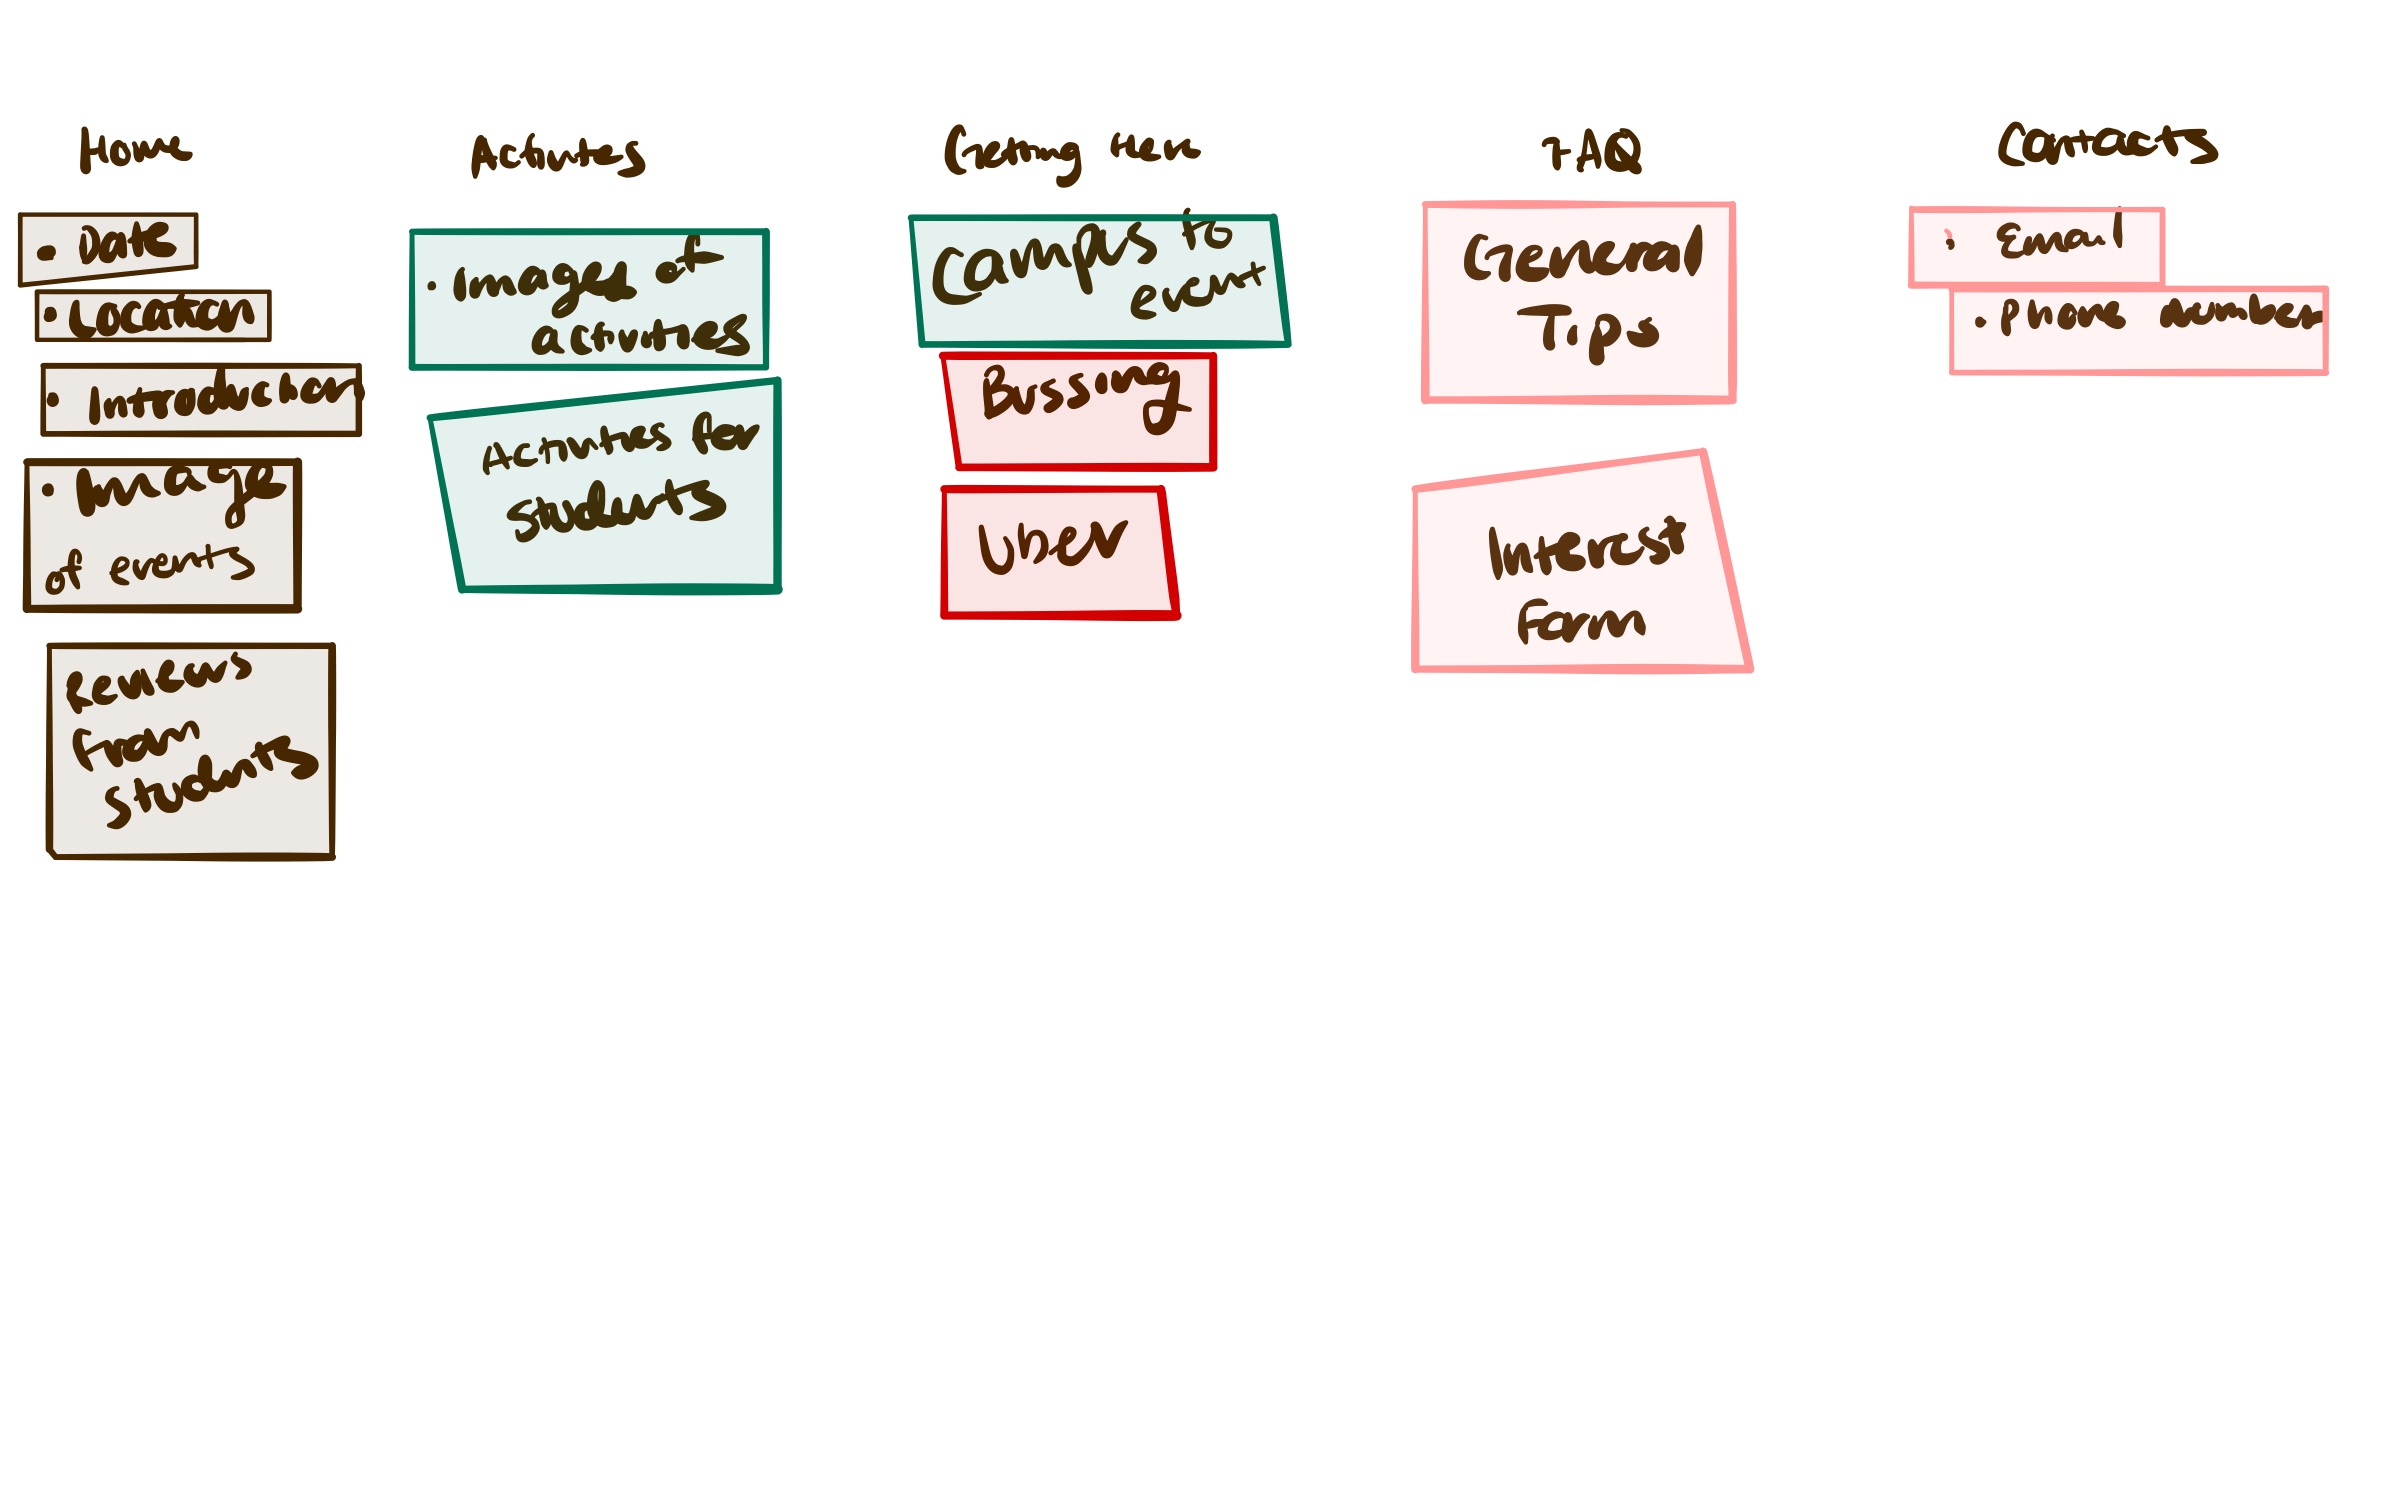 Home
• Date
• Location
• Introduction
• Image
of events
Reviews
from
students
Activites
• Images of
activites
Activites for
students
Getting here
Campus to
event
Bussing
Uber
FAQ
General
Tips
Interest
Form
Contacts
• Email
• Phone number